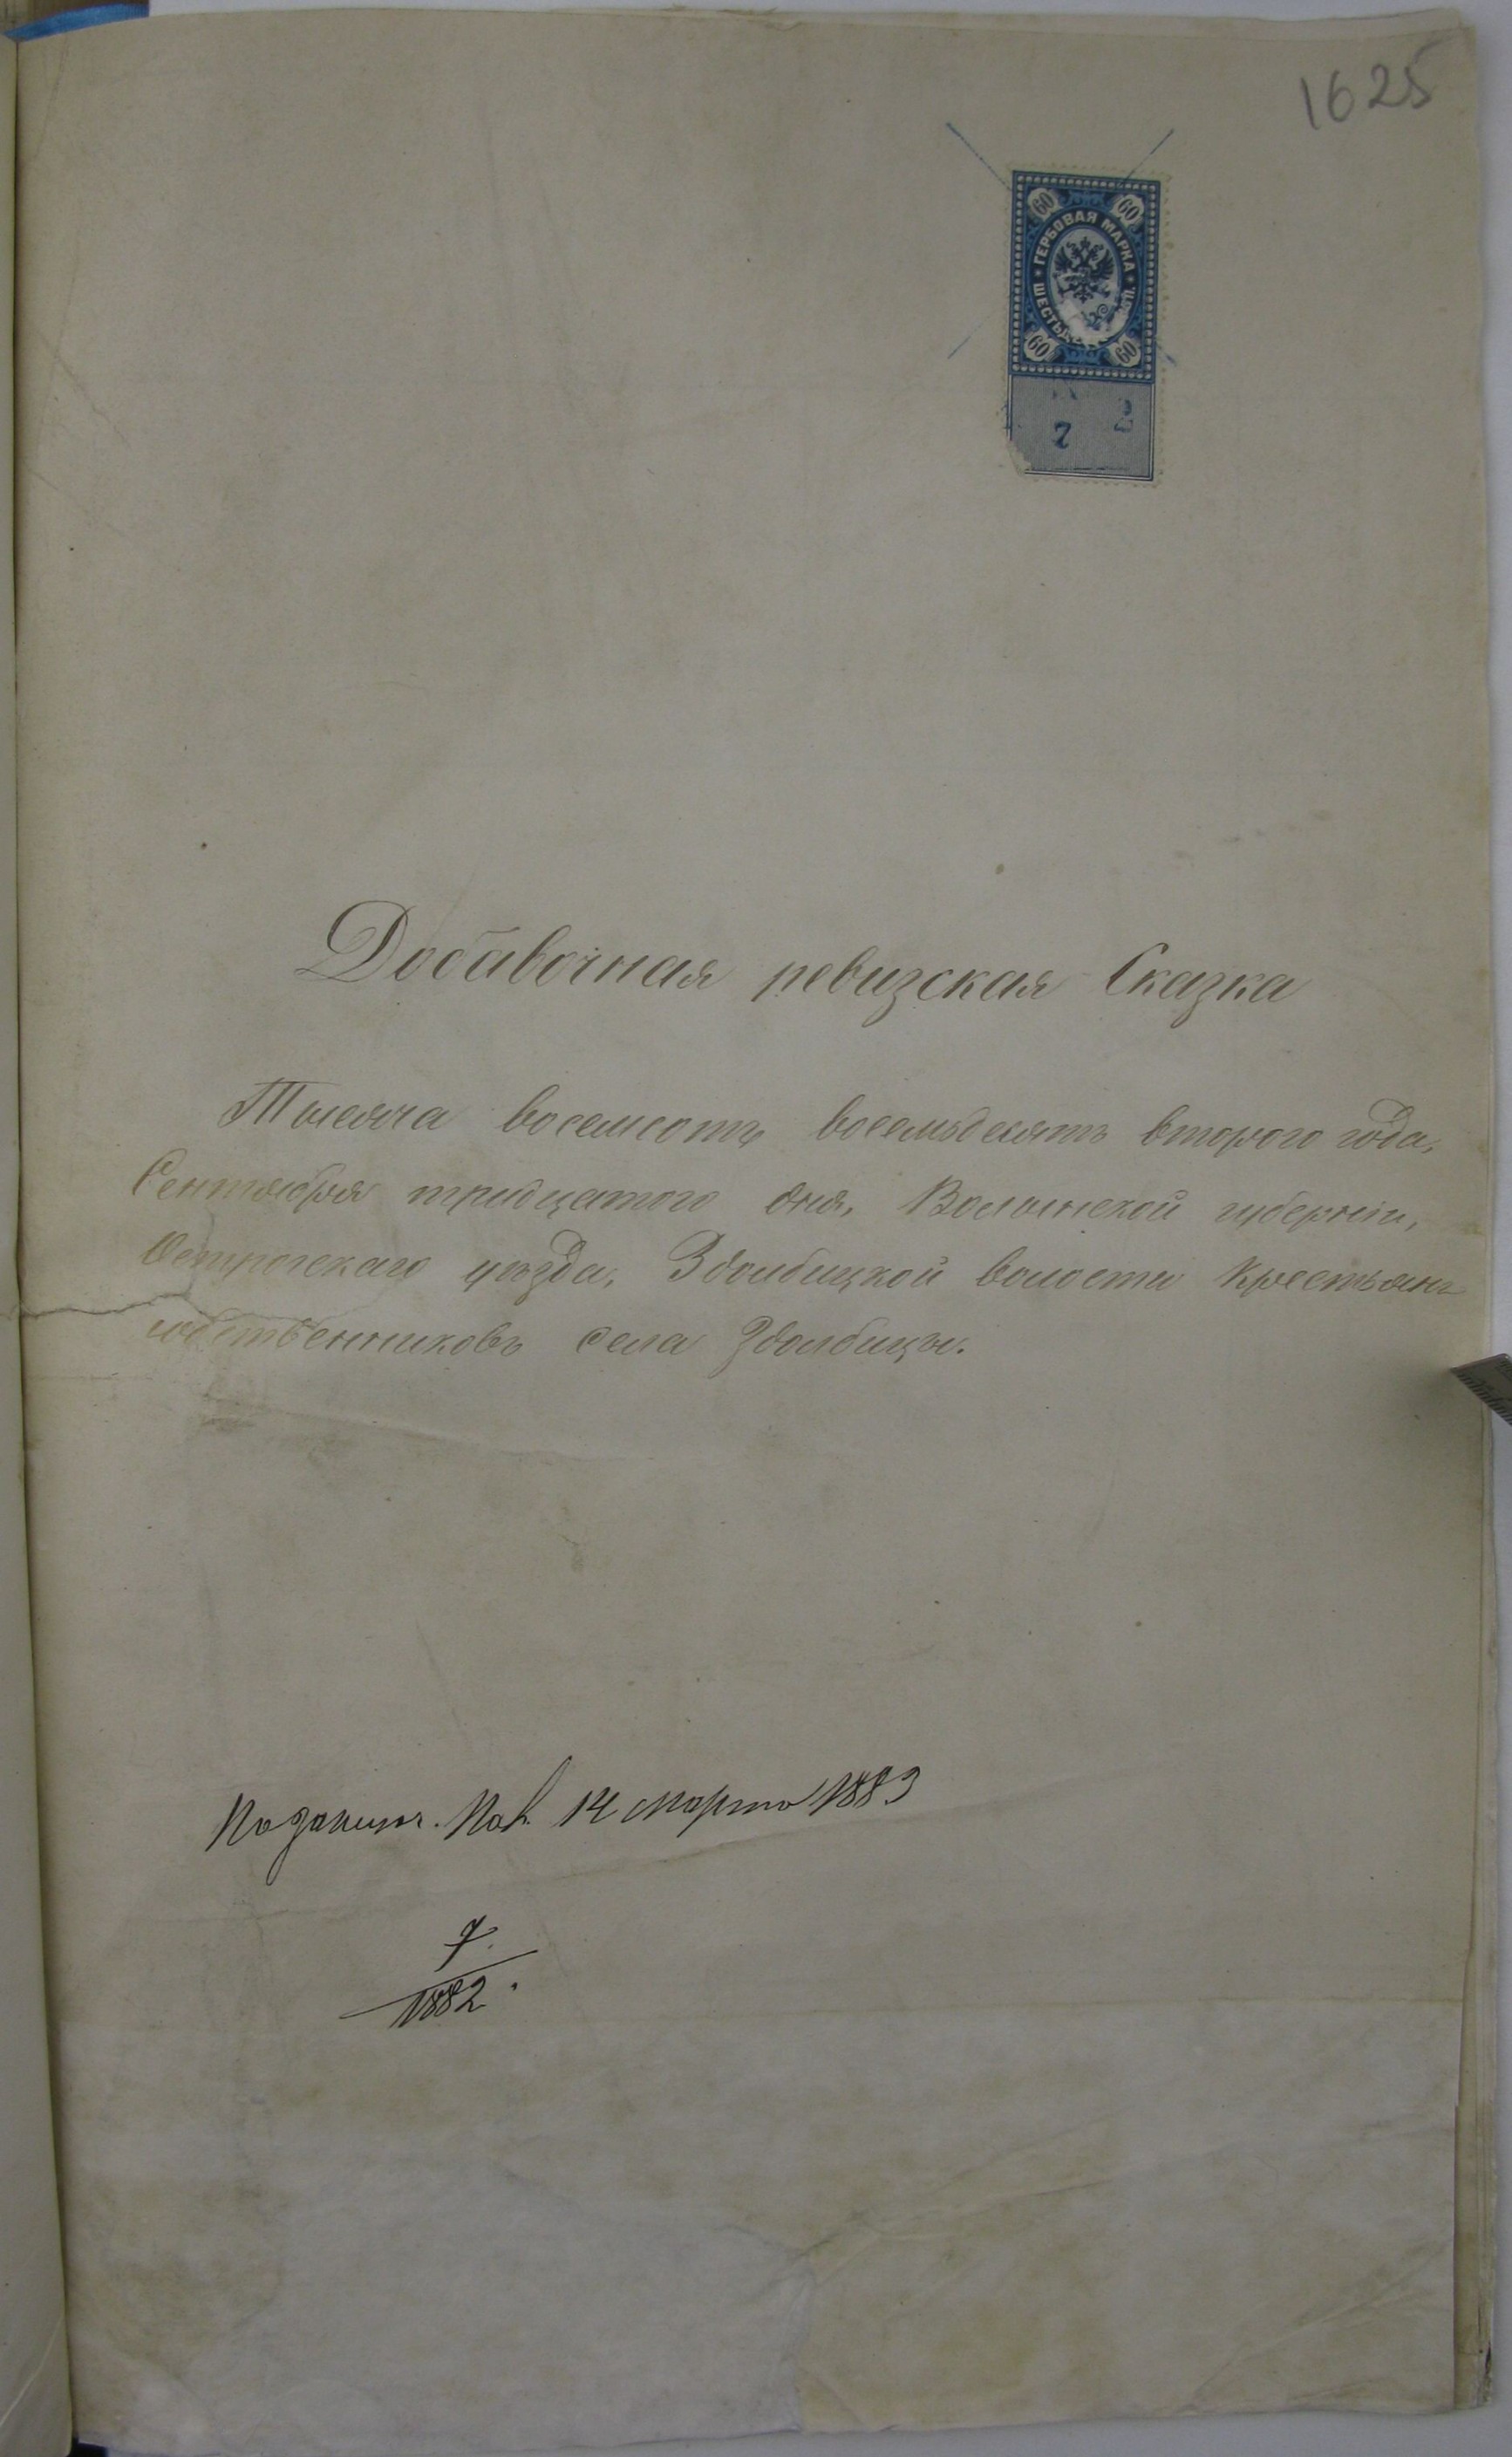 1625
60 60
ГЕРБОВАЯ МАРКА
60 60
2
Добавочная ревизская Сказка
Тысяча восемсотъ восемьдесятъ второго года,
Сентября тридцатого дня, Волынской губерніи,
Острогскаго уѣзда, Здолбицкой волости крестьянъ
собственниковъ села Здолбицы.
14 Марта 1883
7.
1882.